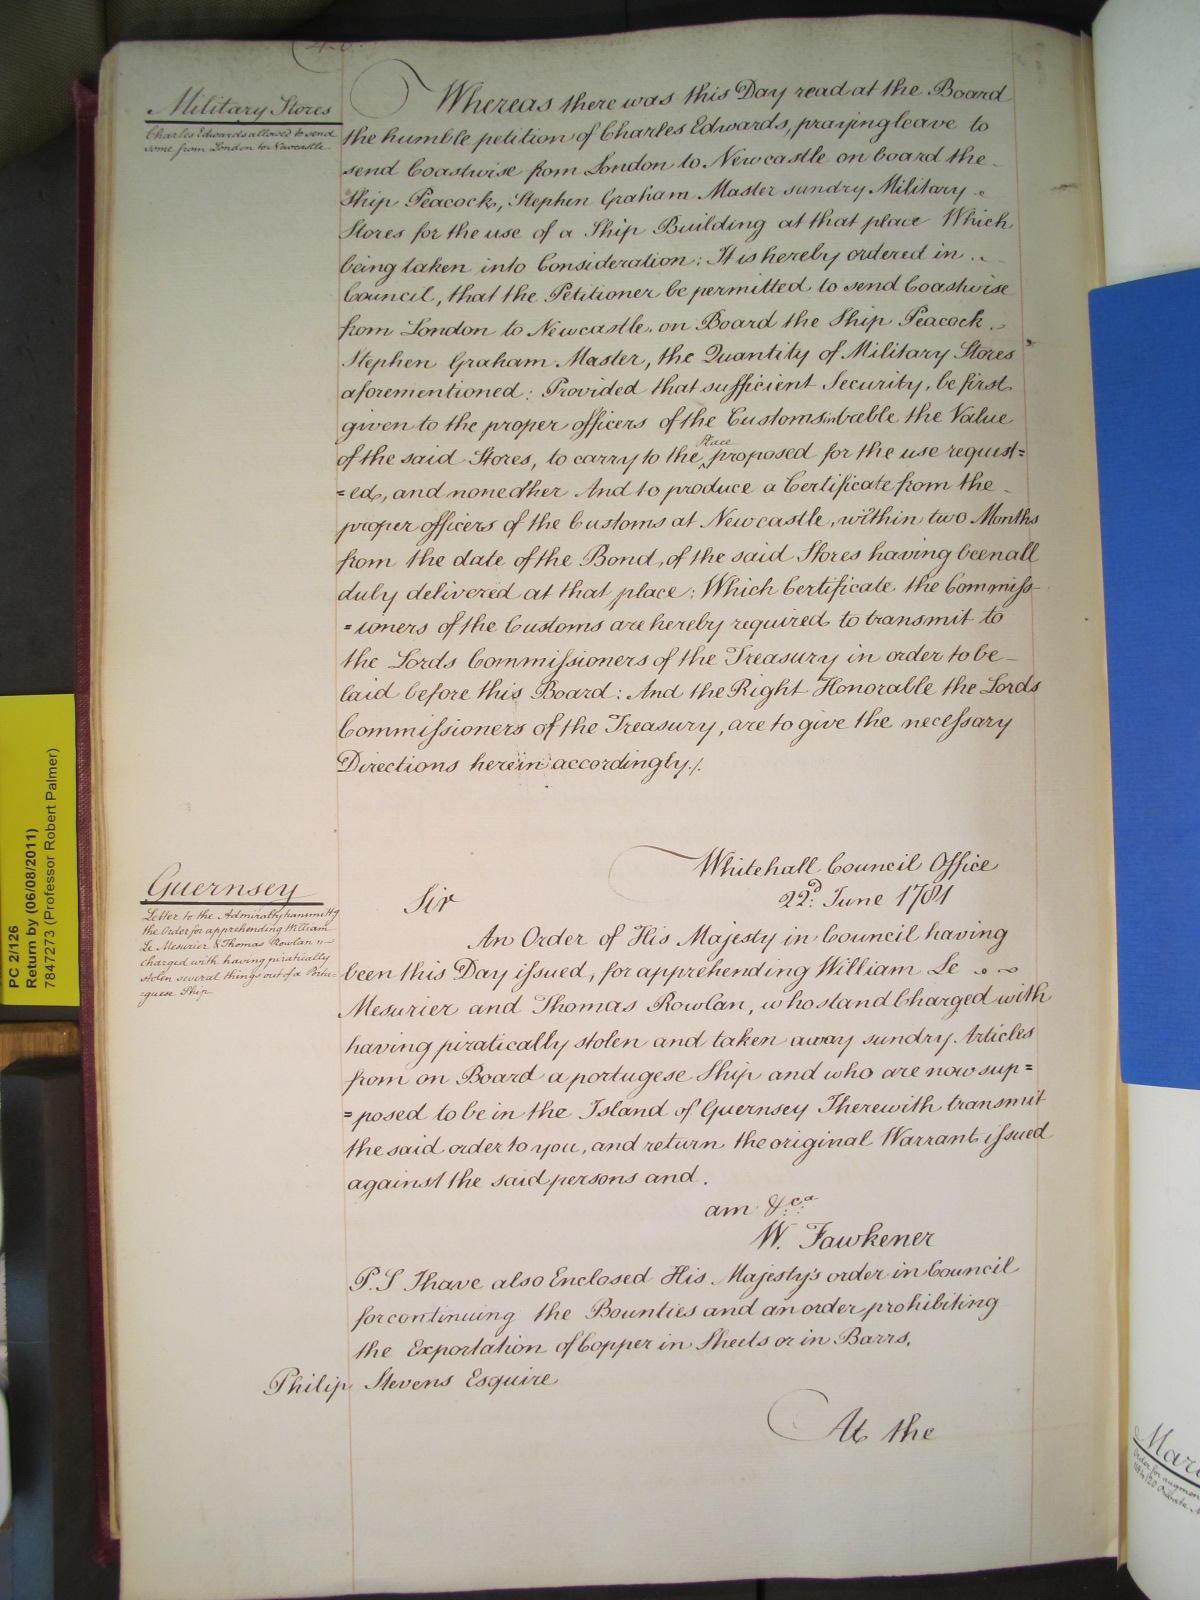 Military Stores
Charles Edwards allowed to send
some from London to Newcastle.
Whereas there was this Day read at the Board
the humble petition of Charles Edwards, praying leave to
send Coastwise from London to Newcastle on board the
Ship Peacock, Stephen Graham Master sundry Military
Stores for the use of a Ship Building at that place Which
being taken into Consideration: It is hereby ordered in
Council, that the Petitioner be permitted to send Coastwise
from London to Newcastle. on Board the Ship Peacock
Stephen Graham Master, the Quantity of Military Stores
aforementioned: Provided that sufficient Security, be first
given to the proper officers of the Customs in treble the Value
Place
of the said Stores, to carry to the proposed for the use request=
=ed, and none other And to produce a Certificate from the
proper officers of the Customs at Newcastle, within two Months
from the date of the Bond, of the said Stores having been all
duly delivered at that place: Which Certificate the Commiss-
=ioners of the Customs are hereby required to transmit to
the Lords Commissioners of the Treasury in order to be
laid before this Board: And the Right Honorable the Lords
Commissioners of the Treasury, are to give the necessary
Directions herein accordingly./.
Guernsey
Letter to the Admiralty transmittg
the Order for apprehending William
Le Mesurier & Thomas Rowlan
charged with having piratically
stolen several things out of a Portu-
=guese Ship
Whitehall Council Office
22d: June 1781
Sir
An Order of His Majesty in Council having
been this Day issued, for apprehending William Le
Mesurier and Thomas Rowlan, who stand Charged with
having piratically stolen and taken away sundry Articles
from on Board a portugese Ship and who are now sup=
=posed to be in the Island of Guernsey I herewith transmit
the said order to you, and return the original Warrant issued
against the said persons and.
am &ca
W. Fawkener
P.S I have also Enclosed His Majesty's order in Council
for continuing the Bounties and an order prohibiting
the Exportation of Copper in Sheets or in Barrs.
Philip Stevens Esquire
At the
PC 2/126
Return by (06/08/2011)
7847273 (Professor Robert Palmer)